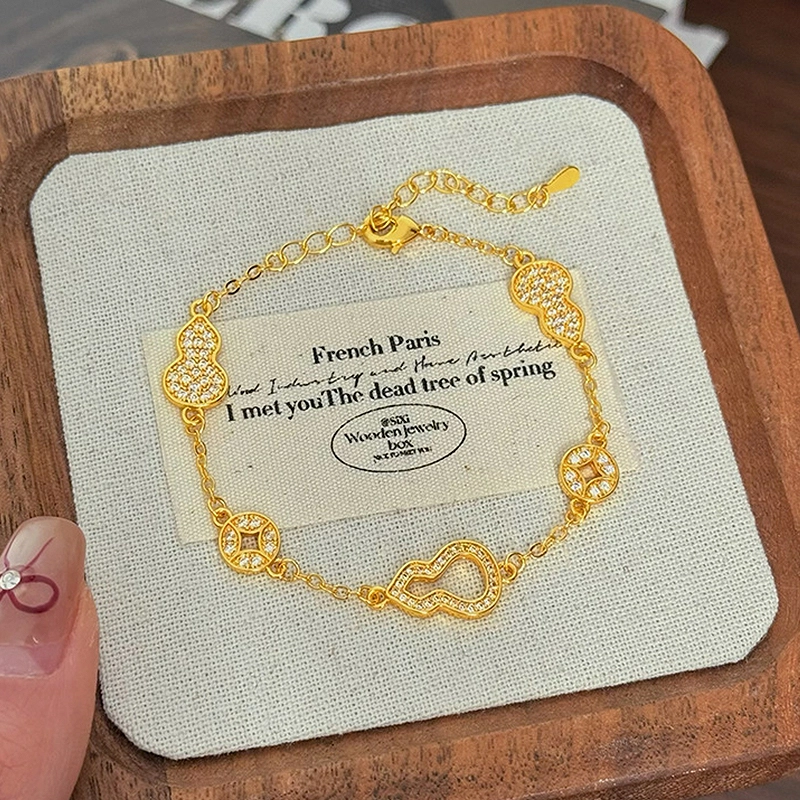 French Paris
Wood Industry and Home Aesthetic
I met youThe dead tree of spring
@SiXi
Wooden jewelry
box
NICE TO MEET YOU